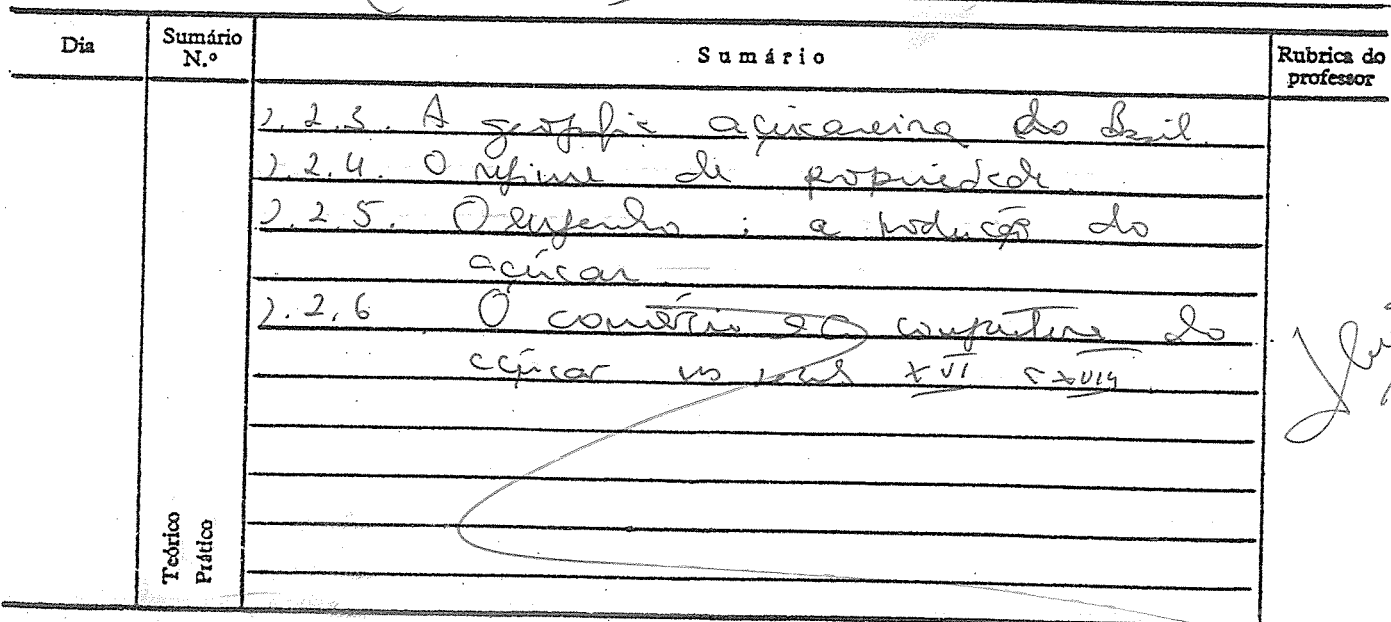 Dia
Sumário N.º
Sumário
Rubrica do professor
2.2.3. A geografia açucareira do Brasil.
2.2.4. O regime de propriedade.
2.2.5. O engenho : a produção do
açúcar
2.2.6 O comércio e a conjuntura do
açúcar nos XVI e XVII
Teórico
Prático